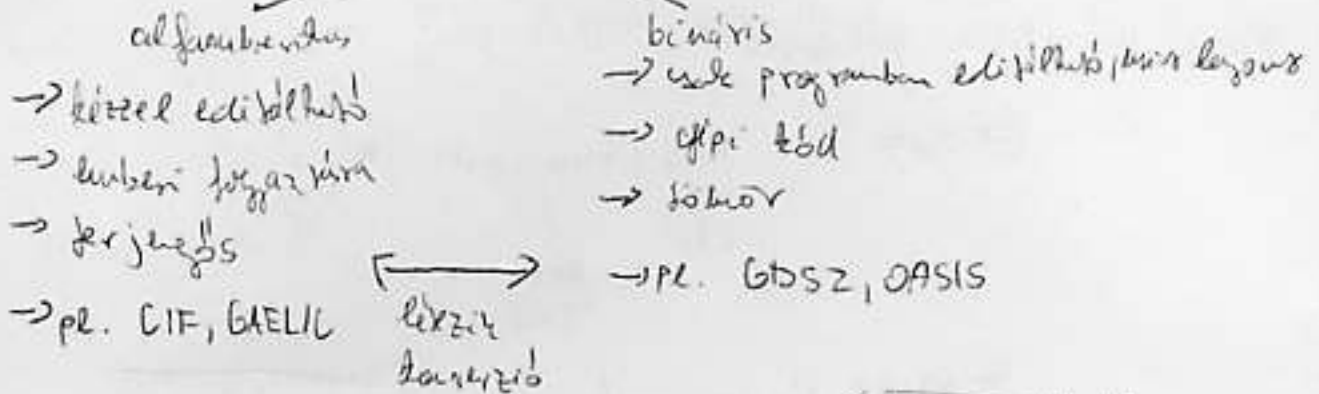 alfanumerikus
→ kézzel editálható
→ emberi fogyasztásra
→ terjengős
→ pl. CIF, GAELIC
létezik
konverzió
bináris
→ csak programban editálható,
→ gépi kód
→ tömör
→ pl. GDS2, OASIS